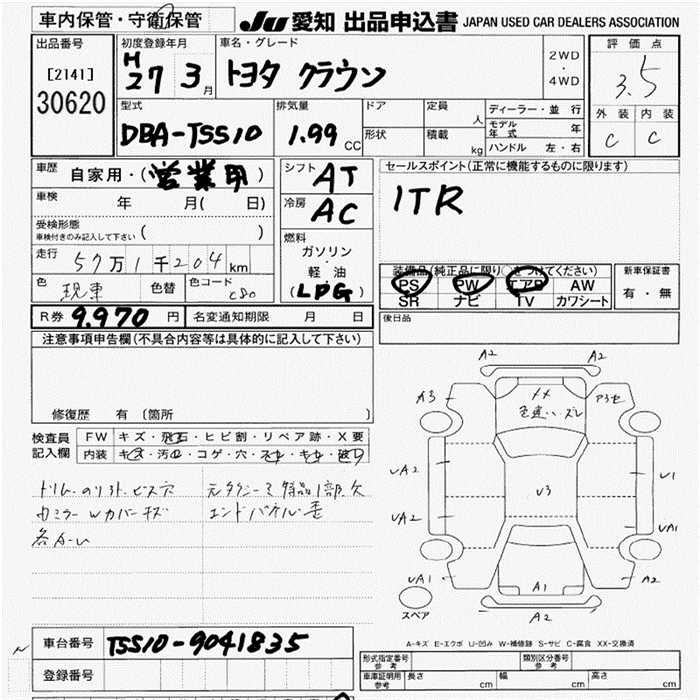 車内保管・守衛保管
JU 愛知 出品申込書 JAPAN USED CAR DEALERS ASSOCIATION
出品番号
[2141]
30620
初度登録年月
H
27 3月
車名・グレード
トヨタ クラウン
2WD
・
4WD
評価点
3.5
外装 内装
C C
型式
DBA-TSS10
排気量
1.99 CC
ドア
定員 人
形状
積載 kg
ディーラー・並行
モデル年式 年
ハンドル 左・右
車歴
自家用・(営業用)
車検
年 月( 日)
受検形態
車検付きのみ記入して下さい ( )
走行
57万1千204km
色
現車 色替
色コード
R券 9.970 円
名変通知期限 月 日
シフト AT
冷房 AC
燃料
ガソリン
・
軽油
(LPG)
セールスポイント(正常に機能するものに限ります)
1TR
装備品(純正品に限り○をつけてください)
PS PW エアB AW
SR ナビ TV カワシート
新車保証書
有・無
後日品
注意事項申告欄(不具合内容等は具体的に記入して下さい)
修復歴 有 〔箇所 〕
検査員
記入欄
FW キズ・飛石・ヒビ割・リペア跡・X要
内装 キズ・汚レ・コゲ・穴・スレ・キレ・破レ
ドリム・のり外ト、ビス穴
元タクシーミ 備品1部欠
カミラーWカバーキズ
エンドパネル歪
各A〜U
A2 A2
A3
メメ
色違い・ズレ
UA2
U3
U1
UA2
UA1
UA1
A1
A2
スペア
A2
A-キズ E-エクボ U-凹み W-補修跡 S-サビ C-腐食 XX-交換済
車台番号 TSS10-9041835
登録番号
形式指定番号
参考
類別区分番号
参考
車庫証明用
参考
長さ cm
幅 cm
高さ cm